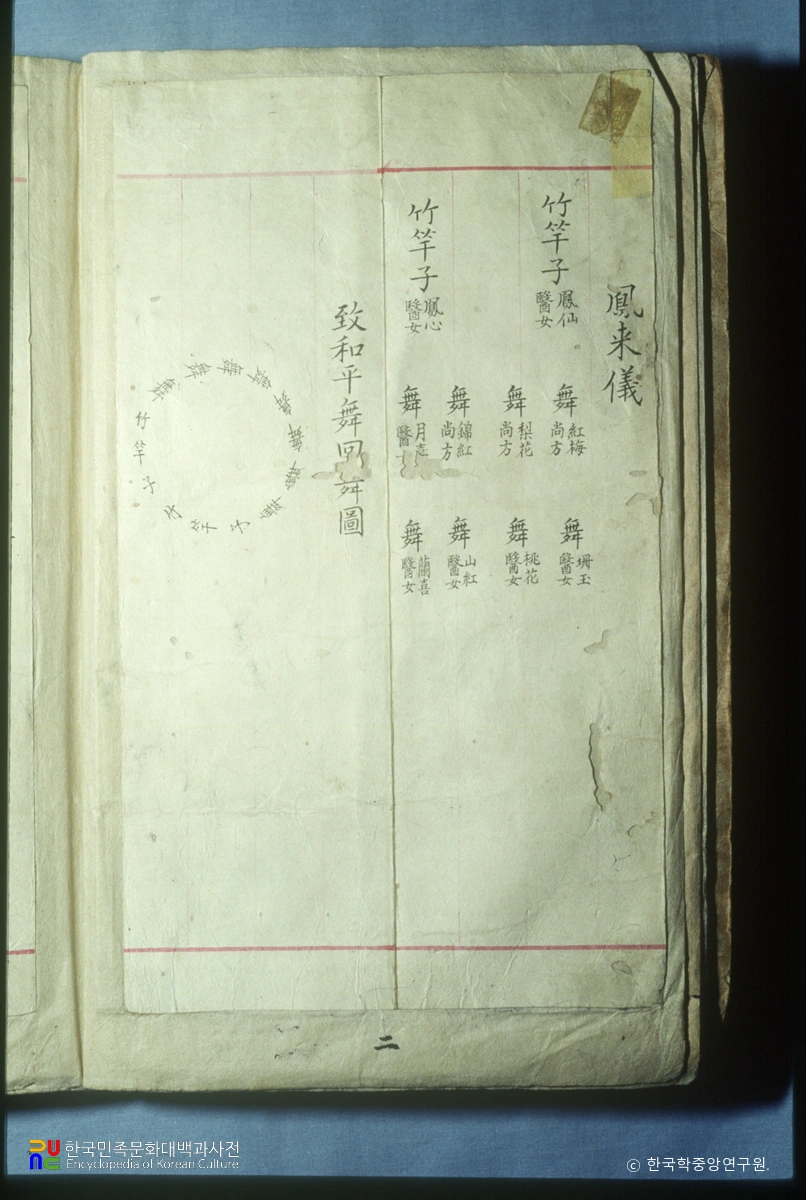 鳳来儀
竹竿子 鳳仙 醫女
舞 紅梅 尚方
舞 珊玉 醫女
舞 梨花 尚方
舞 桃花 醫女
舞 錦紅 尚方
舞 山紅 醫女
竹竿子 鳳心 醫女
舞 月 醫
舞 蘭喜 醫女
致和平舞回舞圖
竹竿子
舞舞舞舞舞舞舞舞
竿子
二
한국민족문화대백과사전
Encyclopedia of Korean Culture
ⓒ 한국학중앙연구원.